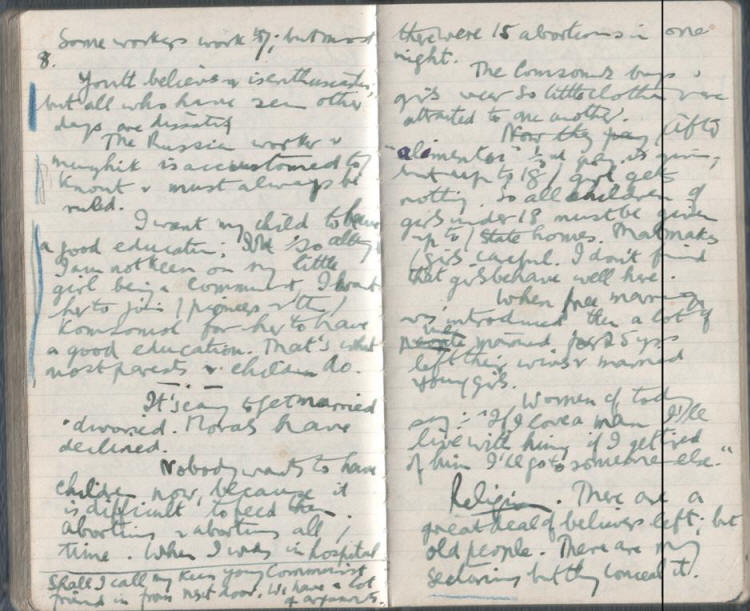 Some workers work             ; but most
8.
Youth believes & is enthusiastic,
but all who have seen other
days are dissatisf
The Russian worker &
muzhik is accustomed to /
knout & must always be
ruled.
I want my child to have
a good education;           so altho
I am not keen on my little
girl being a Communist, I want
her to join / pioneers & the /
Komsomol for her to have
a good education. That's what
most parents & children do.
It's easy to get married
& divorced. Morals have
declined.
Nobody wants to have
children now, because it
is difficult to feed them.
Abortions & abortions all /
time. When I was in hospital
Shall I call my keen young Communist
friend in from next door. We have a lot
of arguments.
there were 15 abortions in one
night.
The Comsomol boys &
girls wear so little clothes
attracted to one another.
Now they pay / after
"alimentos" 1/3 of pay is given,
but up to 18 / girl gets
nothing. So all children of
girls under 18 must be given
up to / state homes. That makes
/ girls careful. I don't find
that girls behave well here.
When free marriage
was introduced then a lot of
married for 25 yrs
left their wives & married
young girls.
Women of today
say: "If I love a man I'll
live with him; if I get tired
of him I'll go to someone else."
Religion. There are a
great deal of believers left; but
old people. There are many
sectarians but they conceal it.